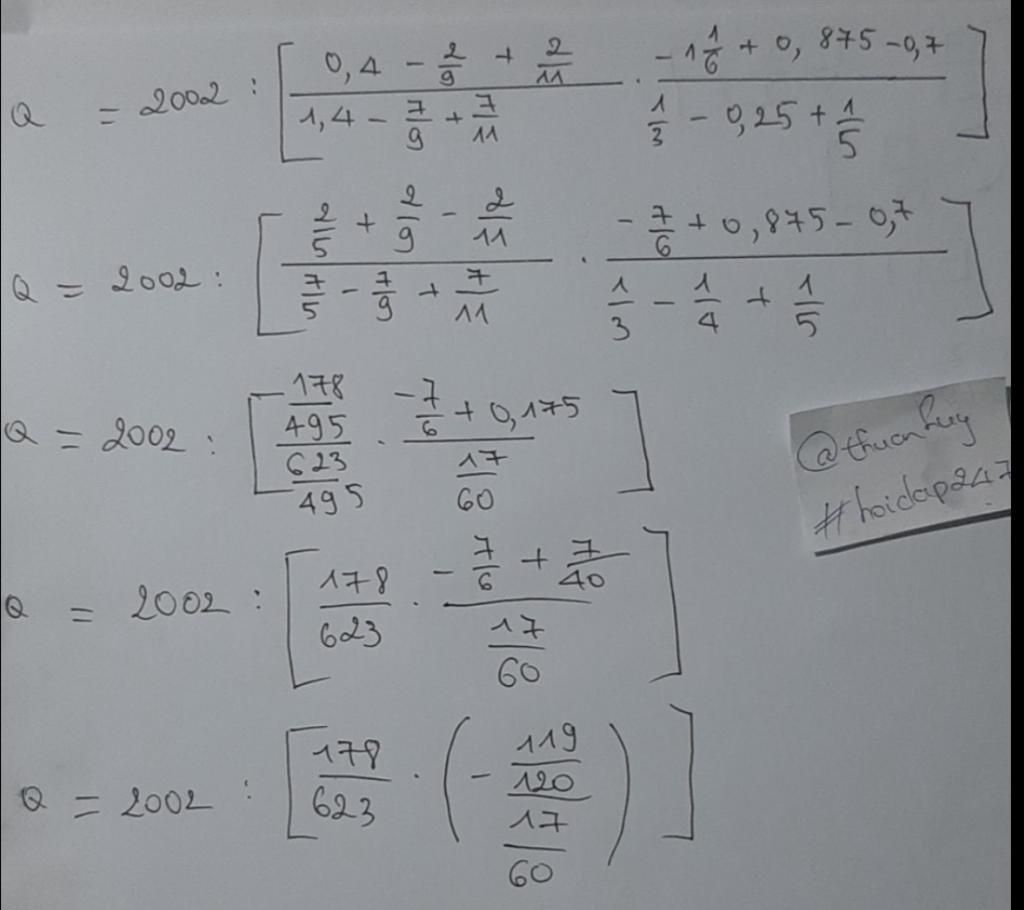 Q = 2002 : [ (0,4 - 2/9 + 2/11)/(1,4 - 7/9 + 7/11) . (-1 1/6 + 0,875 - 0,7)/(1/3 - 0,25 + 1/5) ]
Q = 2002 : [ (2/5 + 2/9 - 2/11)/(7/5 - 7/9 + 7/11) . (-7/6 + 0,875 - 0,7)/(1/3 - 1/4 + 1/5) ]
Q = 2002 : [ (-178/495)/(623/495) . (-7/6 + 0,175)/(17/60) ]
@thuanhuy
#hoidap247
Q = 2002 : [ 178/623 . (-7/6 + 7/40)/(17/60) ]
Q = 2002 : [ 178/623 . ( - (119/120)/(17/60) ) ]